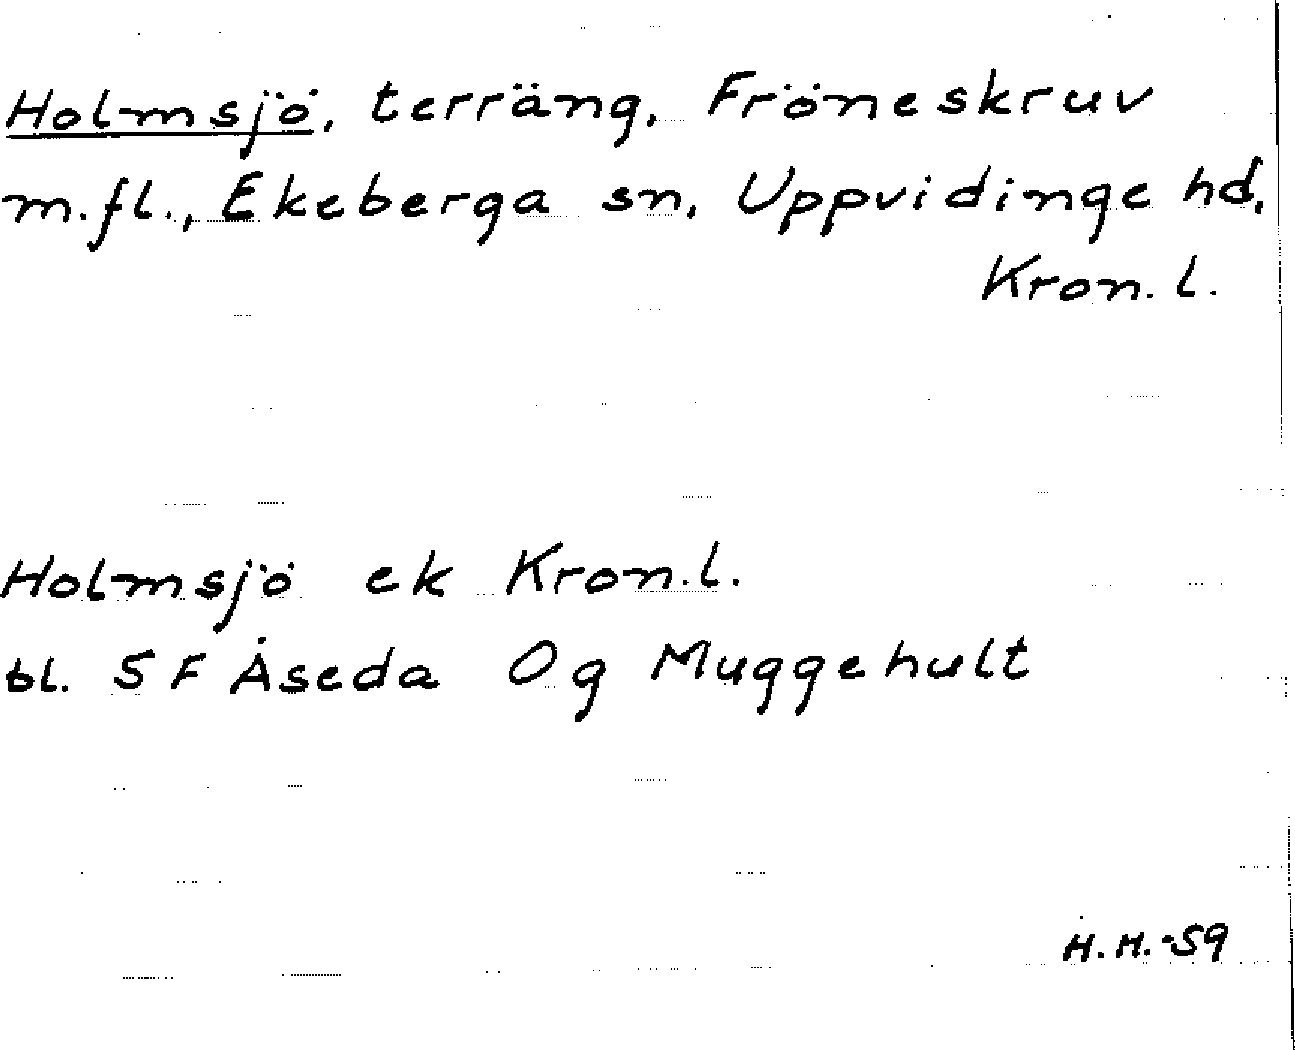 Holmsjö, terräng, Fröneskruv
m.fl., Ekeberga sn, Uppvidinge hd,
Kron.l.
Holmsjö ek Kron.l.
bl. 5F Åseda Og Muggehult
H.H.-59